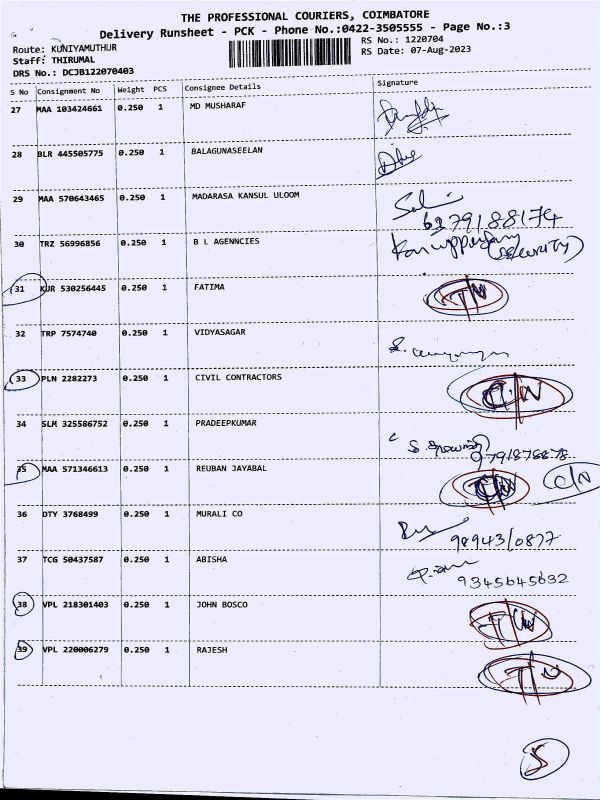 THE PROFESSIONAL COURIERS, COIMBATORE
Delivery Runsheet - PCK - Phone No.:0422-3505555 - Page No.:3
Route: KUNIYAMUTHUR
RS No.: 1220704
Staff: THIRUMAL
RS Date: 07-Aug-2023
DRS No.: DCJB122070403
S No Consignment No Weight PCS Consignee Details Signature
27 MAA 103424661 0.250 1 MD MUSHARAF
28 BLR 445505775 0.250 1 BALAGUNASEELAN
29 MAA 570643465 0.250 1 MADARASA KANSUL ULOOM
6379188174
30 TRZ 56996856 0.250 1 B L AGENNCIES
(security)
31 KUR 530256445 0.250 1 FATIMA
32 TRP 7574740 0.250 1 VIDYASAGAR
33 PLN 2282273 0.250 1 CIVIL CONTRACTORS
34 SLM 325586752 0.250 1 PRADEEPKUMAR
9791878878
35 MAA 571346613 0.250 1 REUBAN JAYABAL C/N
36 DTY 3768499 0.250 1 MURALI CO
9894310877
37 TCG 50437587 0.250 1 ABISHA
9345645632
38 VPL 218301403 0.250 1 JOHN BOSCO
39 VPL 220006279 0.250 1 RAJESH
5